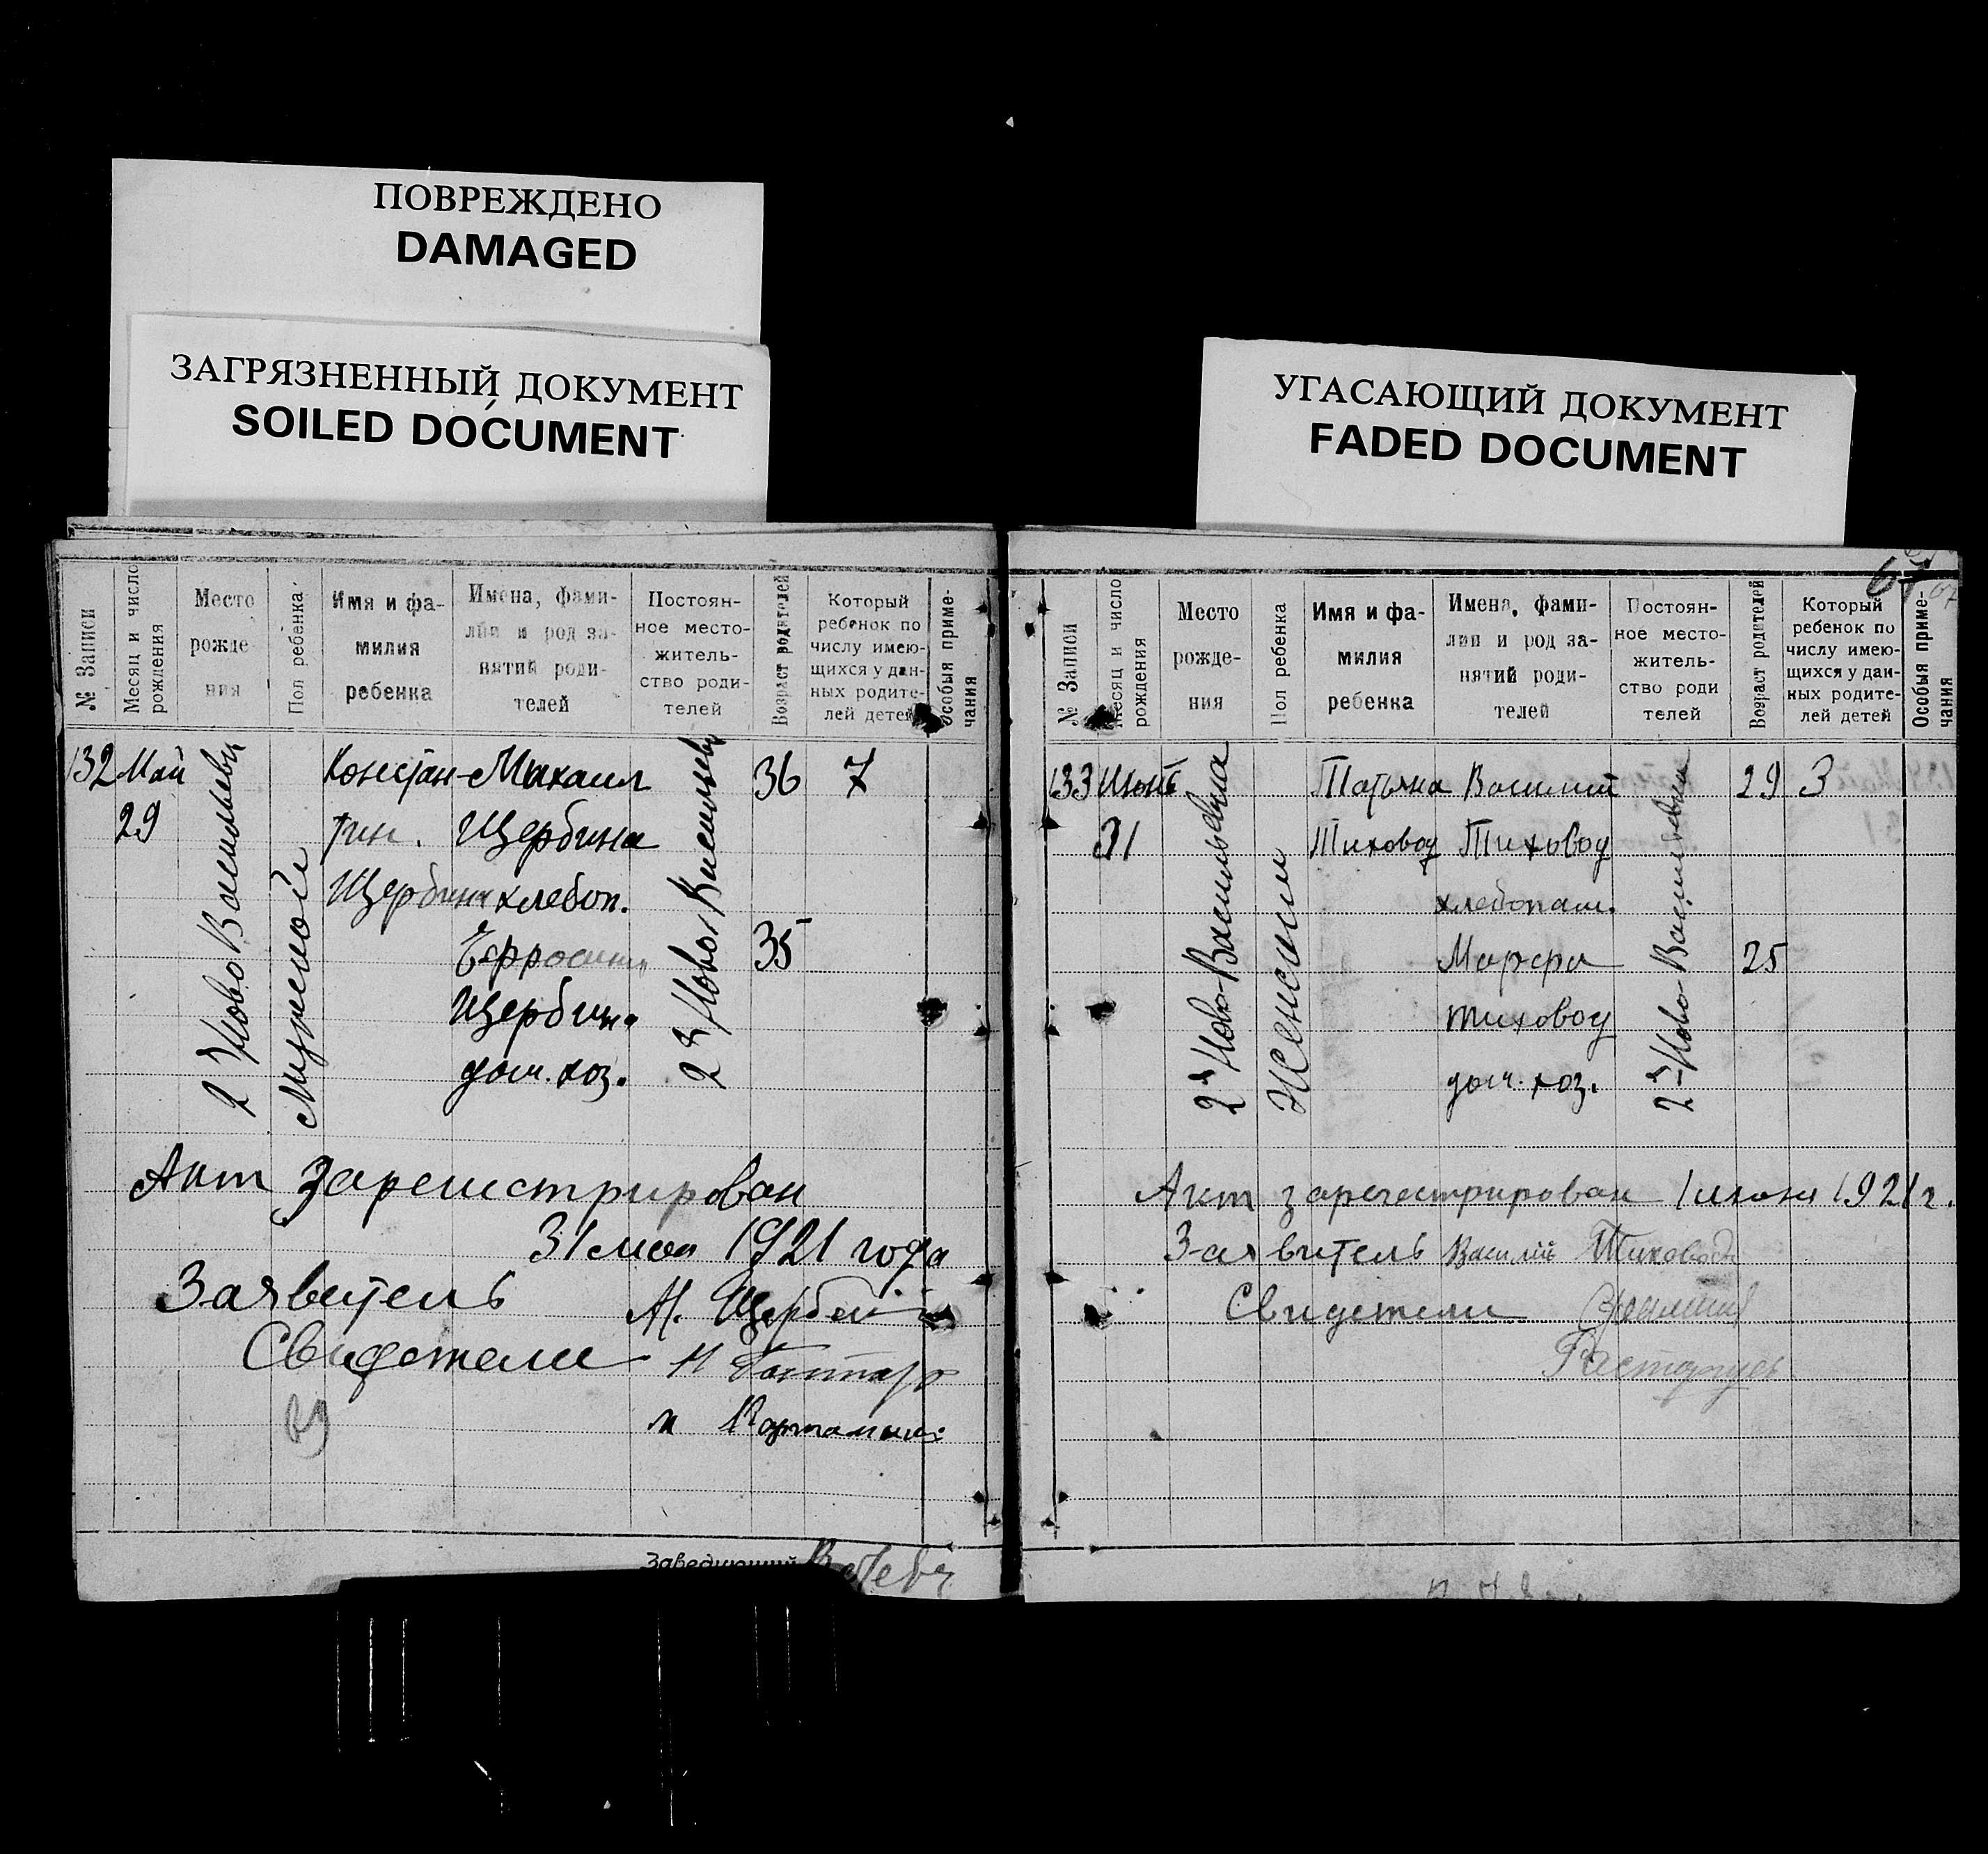 ПОВРЕЖДЕНО
DAMAGED
ЗАГРЯЗНЕННЫЙ ДОКУМЕНТ
SOILED DOCUMENT
УГАСАЮЩИЙ ДОКУМЕНТ
FADED DOCUMENT
№ Записи
Месяц и число
рождения
Место
рожде-
ния
Пол ребенка
Имя и фа-
милия
ребенка
Имена, фами-
лии и род за-
нятий роди-
телей
Постоян-
ное место-
житель-
ство роди-
телей
Возраст родителей
Который
ребенок по
числу имею-
щихся у дан-
ных родите-
лей детей
Особыя приме-
чания
132 Май
29
2я Ново Васильевка
Мужской
Констан-
тин.
Щербина
Михаил
Щербина
хлебоп.
Щербина
дом. хоз.
2я Ново Васильевка
36
35
7
Акт Зарегистрирован
31 мая 1921 года
Заявитель М. Щербина
Свидетели Н
и
29
Заведующий
67
№ Записи
Месяц и число
рождения
Место
рожде-
ния
Пол ребенка
Имя и фа-
милия
ребенка
Имена, фами-
лии и род за-
нятий роди-
телей
Постоян-
ное место-
житель-
ство роди
телей
Возраст родителей
Который
ребенок по
числу имею-
щихся у дан-
ных родите-
лей детей
Особыя приме-
чания
133 Июнь
31
2я Ново-Васильевка
Женский
Татьяна
Тиховод
Василий
Тиховод
хлебопаш.
Марфа
тиховод
дом. хоз.
2я Ново-Васильевка
29
25
3
Акт зарегистрирован 1 июня 1921 г.
Заявитель Василий Тиховод
Свидетели